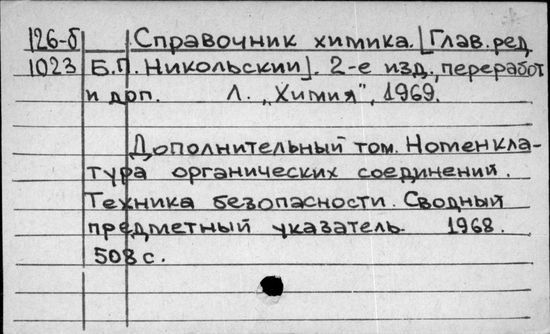 126-б Справочник химика. [Глав. ред
1023 Б.П. Никольский]. 2-е изд., переработ
и доп. Л. „Химия", 1969.
Дополнительный том. Номенкла-
тура органических соединений.
Техника безопасности. Сводный
предметный указатель. 1968.
508 с.